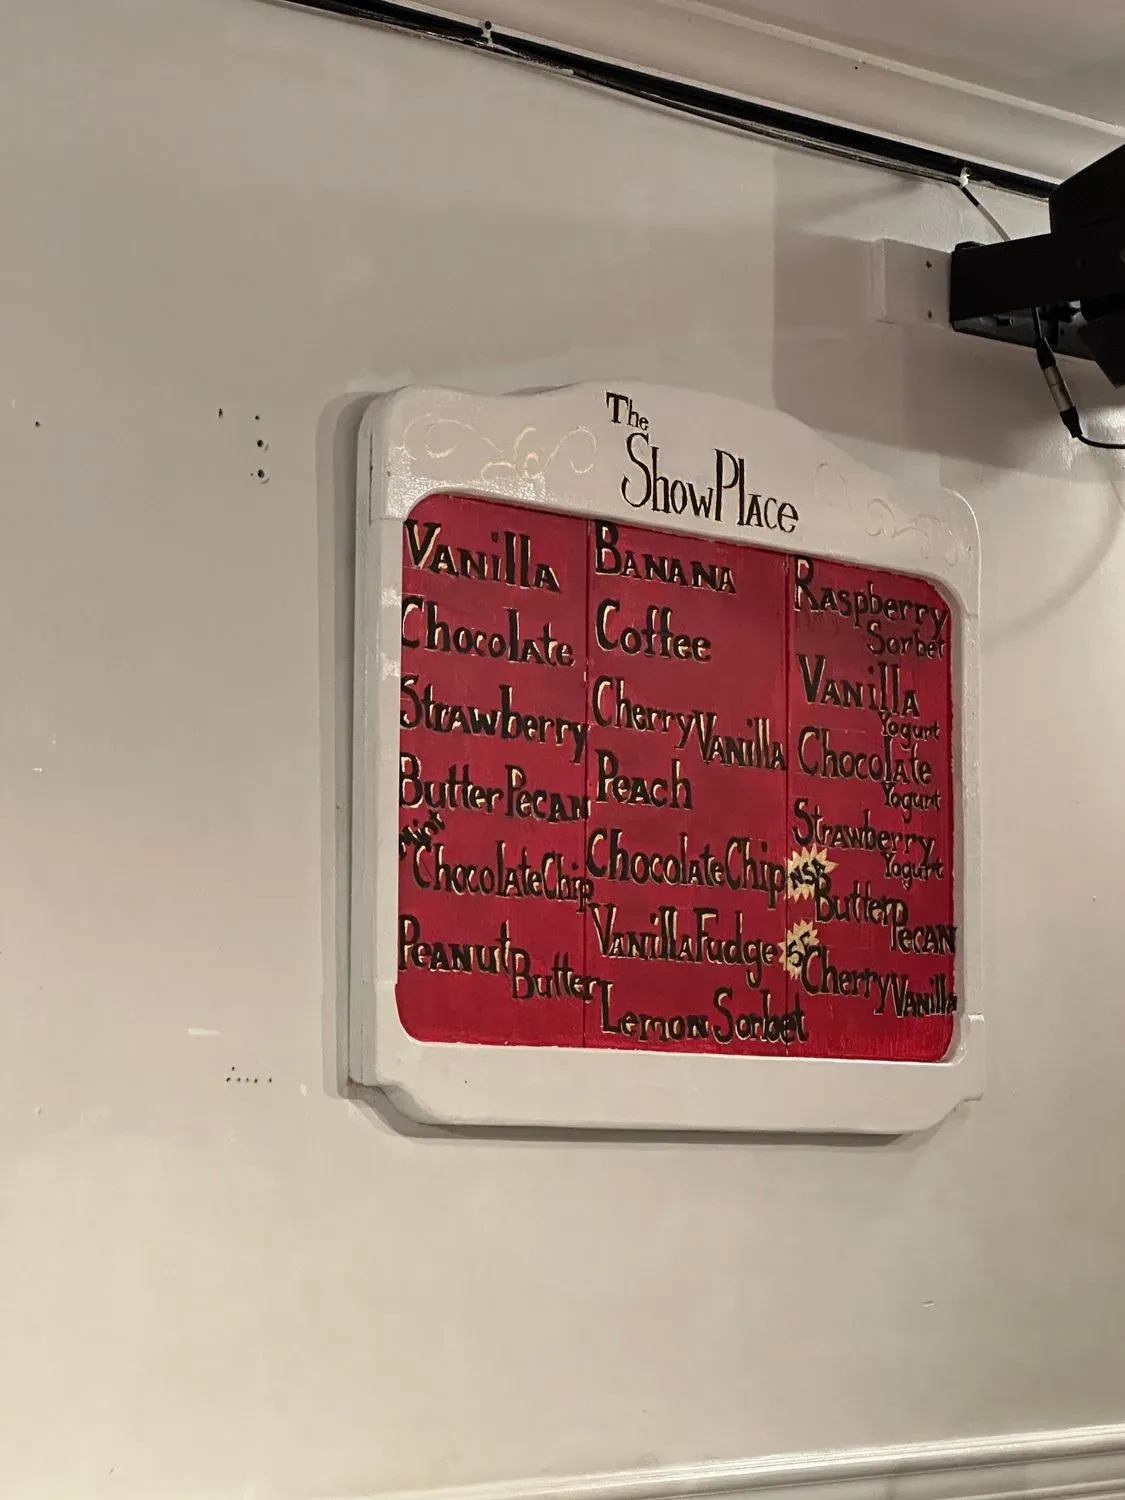 The
ShowPlace
Vanilla
Chocolate
Strawberry
Butter Pecan
Mint
Chocolate Chip
Peanut Butter
Banana
Coffee
Cherry Vanilla
Peach
Chocolate Chip
Vanilla Fudge
Lemon Sorbet
Raspberry
Sorbet
Vanilla
Yogurt
Chocolate
Yogurt
Strawberry
Yogurt
NSA
Butter Pecan
SF
Cherry Vanilla